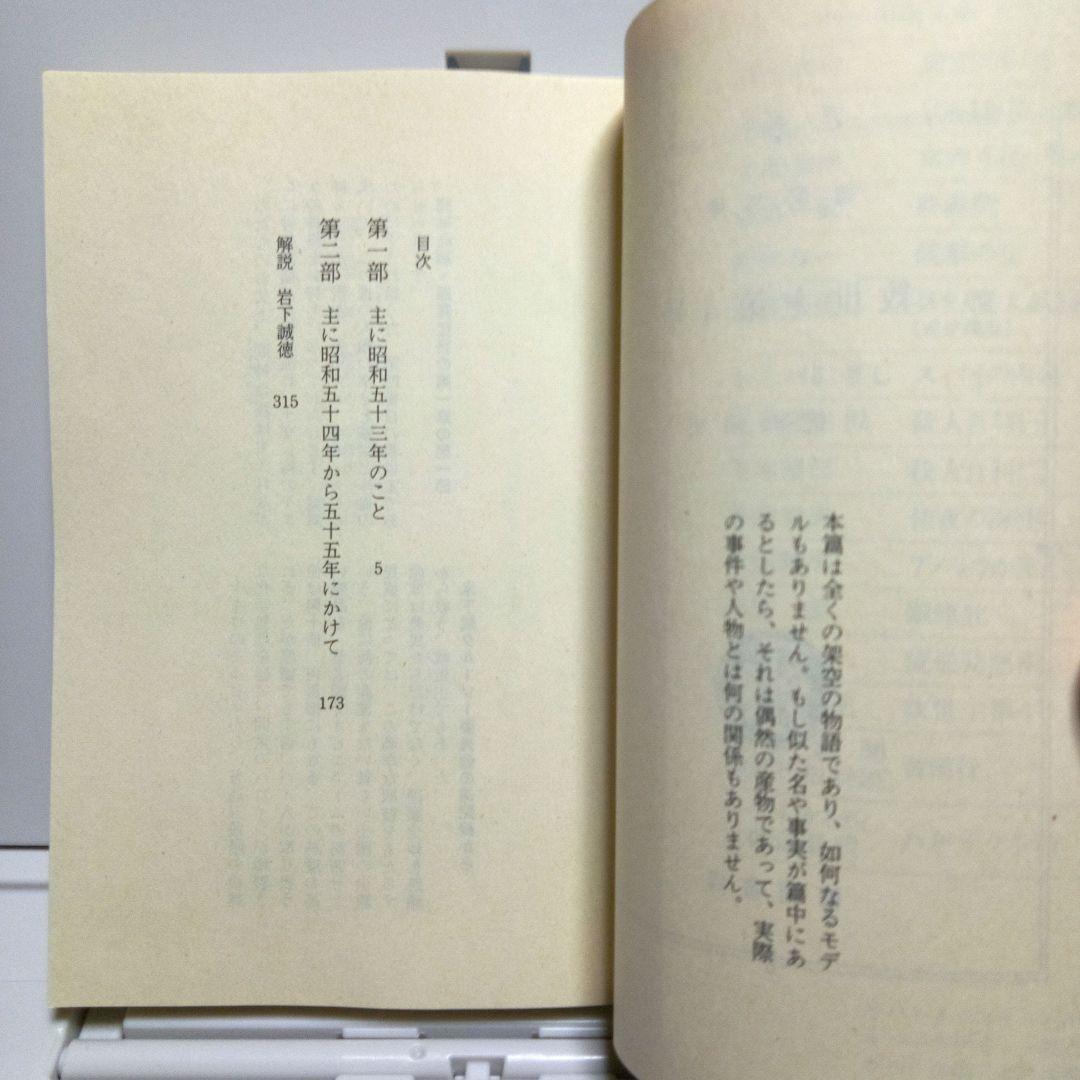 本篇は全くの架空の物語であり、如何なるモデ
ルもありません。もし似た名や事実が篇中にあ
るとしたら、それは偶然の産物であって、実際
の事件や人物とは何の関係もありません。
目次
第一部 主に昭和五十三年のこと 5
第二部 主に昭和五十四年から五十五年にかけて 173
解説 岩下誠徳 315